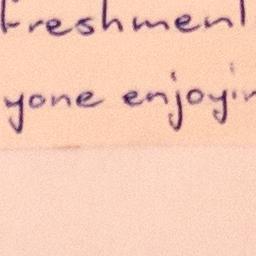 freshment
yone enjoyin